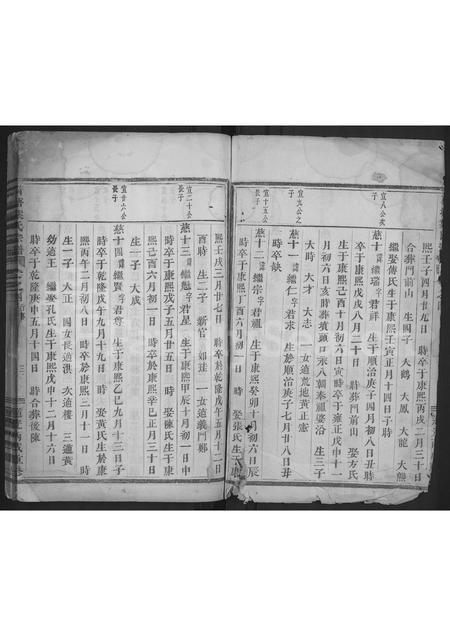 宜八公次子
熙壬子四月廿九日 時卒于康熙丙戌二月三十日
合葬門前山 生四子 大鶴 大鳳 大龍 大熊
繼娶傅氏生于康熙壬寅正月十四日子時
慈十 諱繼瑞字君祥 生于順治庚子四月初八日丑時
卒于康熙戊戌八月二十日 時葬門前山 娶方氏
生于康熙己酉十月初六日寅時卒于雍正戊申十一
月初六日亥時葬墳頭口
生三子
大時 大才 大志 一女適荒地黃正憲
宜九公之子
慈十一 諱繼仁字君求 生於順治庚子七月廿八日丑
時卒缺
宜十五公長子
慈十二 諱繼宗字君禮 生于康熙癸卯十月初六日辰
時卒于康熙丁酉六月初八日 時 娶張氏生于康
熙壬戌三月廿七日 時卒於乾隆戊午五月十二日
酉時 生二子 新官 如珪 一女適義門鄭
宜二十公長子
慈十三 諱繼魁字君星 生于康熙甲辰十月初一日申
時卒于康熙戊子五月廿五日 時 娶陳氏生于康
熙己酉六月初一日 時卒於康熙辛巳正月三十日
生一子 大成
宜廿六公長子
慈十四 諱繼賢字君尊 生于康熙乙巳九月十三日子
時卒于乾隆戊午九月十九日 時 娶黃氏生於康
熙丙午二月初八日 時卒於康熙 三月十一日 時
生一子 大正 四女長適洪 次適樓 三適黃
幼適王 繼娶孔氏生于康熙戊申十二月十六日
時卒于乾隆庚申五月十四日 時合葬後陳